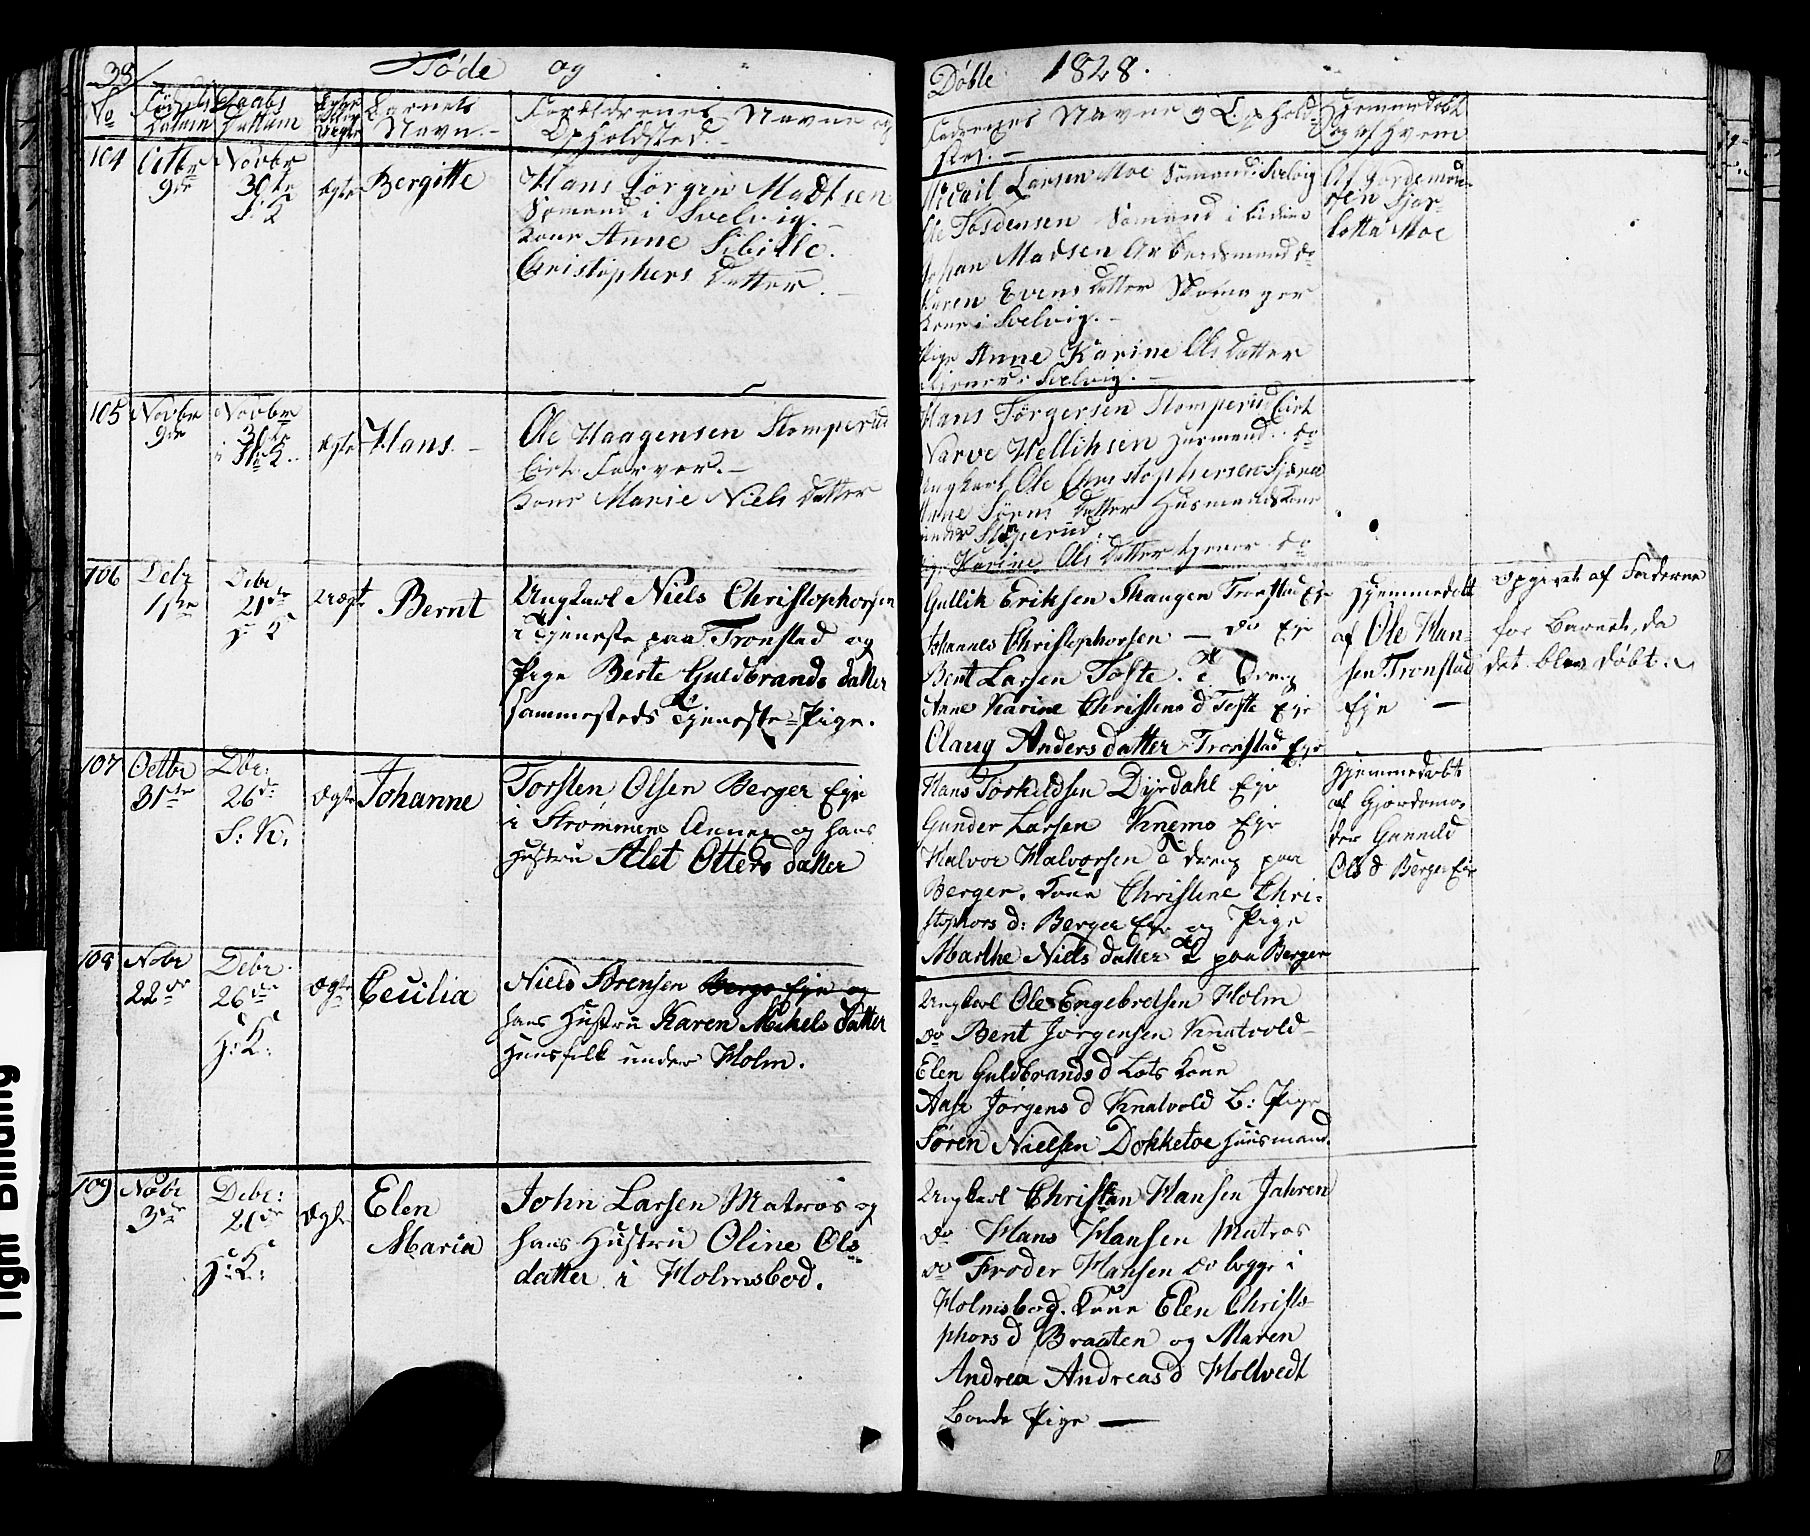 38
Föde og
Döbte 1828.
No
Födsels Datum
Daabs Dattum
Barnets Navn.
Forældrenes Navne og Opholdsted.
Fadrenes Navne og Opholdsted.
Hjemmedøbt og af hvem
104
Octbr 9de
Novbr 30te S: K
Ægte
Bergitte
Hans Jörgen Madtsen
Sömand i Svelvig.
Kone Anne Sibille
Christophers Datter.
Micail Larsen Moe Sömand i Svelvig
Ole Tosdensen Sömand i
Johan Madsen Arbeidsmand do
Karen Evens Datter Skomager
Kone i Svelvig.
Pige Anne Karine Ols Datter
tjener i Svelvig.
Af Jordemoderen
Lotta Moe
105
Novbr 9de
Novbr 30te
Ægte
Hans
Ole Haagensen Stomperud
Farver.
Kone Marie Niels Datter
Hans Jörgersen Stomperud
Narve Helliksen Husmand do
Ungkarl Ole Christophersen
Anne Sörens Datter Husmands Kone
under
Karine Ols Datter tjener do
106
Debr 1ste
Debr 21de H: K
Uægte
Bernt
Ungkarl Niels Christophorsen
i Tjeneste paa Tronstad og
Pige Berte Guldbrands datter
sammesteds Tjeneste-Pige.
Gullik Eriksen Skaugen Tronstad Eje
Johannes Christophorsen — do Eje
Bent Larsen Tofte. Dreng
Anne Karine Christens d Tofte Eje
Olaug Anders datter Tronstad Eje
Hjemmedøbt
af Ole Han-
sen Tronstad
Eje —
Opgivet af Faderne
for Barnet, da
det blev døbt.
107
Octbr 31te
Dbr: 26de S: K.
Ægte
Johanne
Torsten Olsen Berger Eje
i Strömmens Annex og hans
Hustru Alet Otters datter
Hans Torkildsen Dyrdahl Eje
Gunder Larsen Knemo Eje
Halvor Halvorsen T dreng paa
Berger. Kone Christine Chri-
stophors d: Berger Eje og Pige
Marthe Niels datter paa Berger
Hjemmedøbt
af Gjordemo-
der Gunnild
Ols d Berger Eje
108
Nobr 22de
Debr 26de H: K:
Ægte
Cecilia
Niels Sörensen Berge Eje og
hans Hustru Karen Mikels datter
Huusfolk under Holm.
Ungkarl Ole Engebretsen Holm
do Bent Jörgensen Knatvold
Elen Guldbrands d Lots Kone
Aase Jörgens d Knatvold B: Pige
Sören Nielsen Dokketoe Huusmand.
109
Nobr 3die
Debr: 21de H: K:
Ægte
Elen
Maria
John Larsen Matros og
hans Hustru Oline Ols-
datter i Holmsbod.
Ungkarl Christian Hansen Jahren
do Hans Hansen Matros
do Froder Hansen do begge i
Holmsbod. Kone Elen Christo-
phors d Braaten og Maren
Andrea Andreas d Holtvedt
Bonde Pige —
Tight Binding